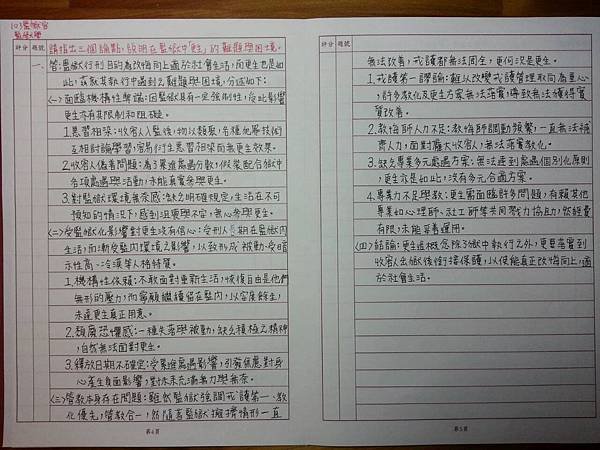 103監獄官
監獄學
評分 題號
請指出三個論點,說明在監獄中「更生」的難題與困境。
一、
答:監獄行刑目的為改悔向上適於社會生活,而更生也是如
此,或就其執行中遇到之難題與困境,分述如下:
(一)面臨機構性弊端:因監獄具有一定強制性,受此影響
更生亦有其限制和阻礙。
1.惡習相染:收容人入監後,物以類聚,各種犯罪技術
互相討論學習,容易衍生惡習相染而無更生效果。
2.收容人偽善問題:為了累進處遇分數,假裝配合獄中
各項處遇與活動,未能真實參與更生。
3.對監獄環境無奈感:缺乏明確規定,生活在不可
預知的情況下,感到沮喪與不安,無心參與更生。
(二)受監獄化影響對更生沒有信心:受刑人長期在監獄內
生活,而漸受監內環境之影響,以致形成被動、受暗
示性高、冷漠等人格特質。
1.機構性依賴:不敢面對重新生活,恢復自由是他們
無形的壓力,而寧願繼續留在監內,以安度餘生,
未達更生真正用意。
2.頹廢恐懼感:一種失落與被動,缺乏積極之精神
,自然無法面對更生。
3.釋放日期不確定:受累進處遇影響,引發焦慮對身
心產生負面影響,對未來充滿無力與無奈。
(三)管教本身存在問題:雖然監獄強調戒護第一、教
化優先,管教合一,然隨著監獄擁擠情形一直
第4頁
評分 題號
無法改善,戒護都無法周全,更何況是更生。
1.戒護第一謬論:難以改變戒護管理取向為重心
,許多教化及更生方案無法落實,導致無法獲得實
質改善。
2.教誨師人力不足:教誨師調動頻繁,一直無法補
齊人力,面對龐大收容人,無法落實教化。
3.缺乏專業多元處遇方案:無法達到處遇個別化原則
,更生亦是如此,沒有多元合適方案。
4.專業力不足與教:更生需面臨許多問題,有賴其他
專業如心理師、社工師等共同努力協助,然經費
有限,未能妥善運用。
(四)結論:更生這概念除了獄中執行之外,更要落實到
收容人出獄後銜接保護,以使能真正改悔向上,適
於社會生活。
第5頁